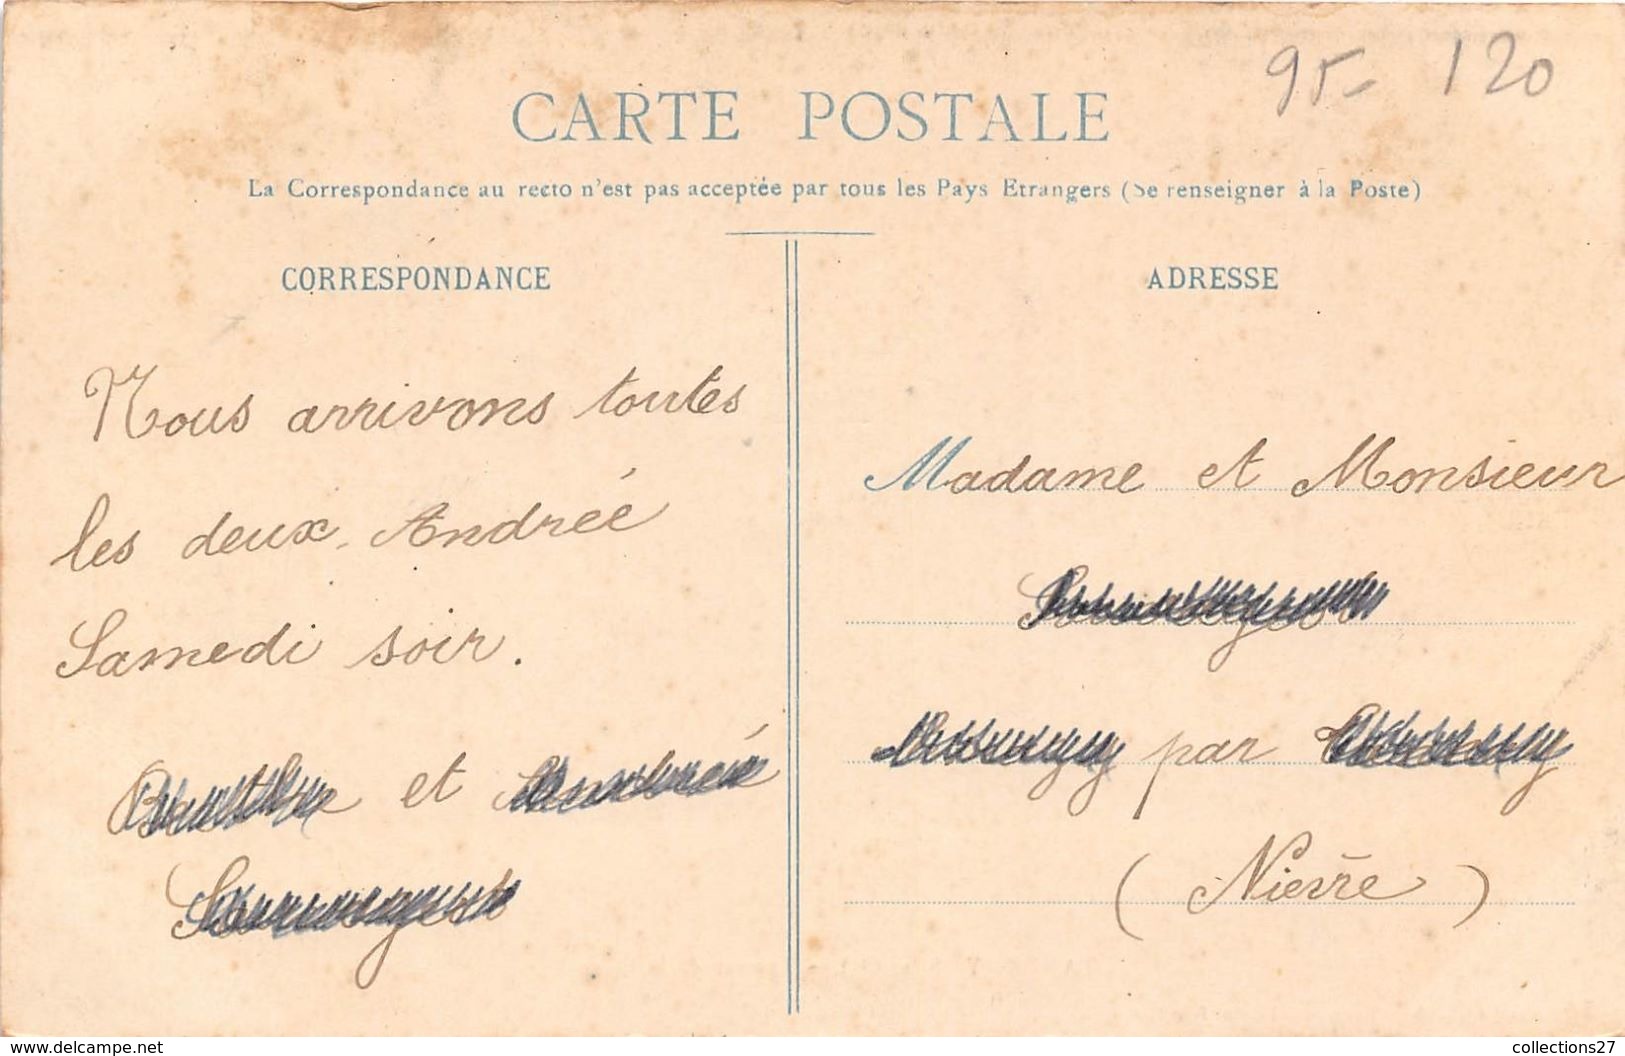 95- 120
CARTE POSTALE
La Correspondance au recto n'est pas acceptée par tous les Pays Etrangers (Se renseigner à la Poste)
CORRESPONDANCE
Nous arrivons toutes
les deux, Andrée
Samedi soir.
et
ADRESSE
Madame et Monsieur
par
(Nièvre)
www.delcampe.net
collections27